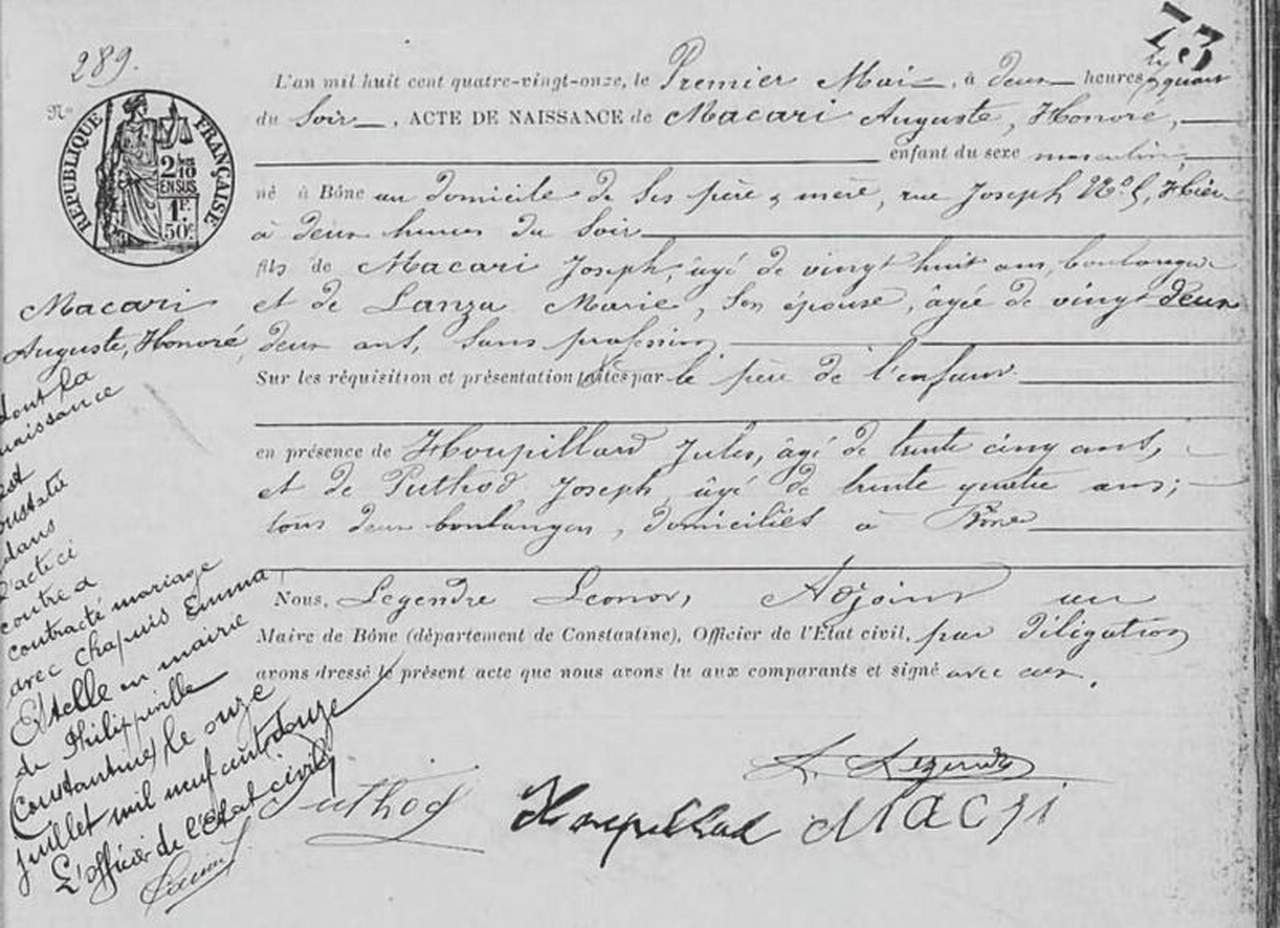 73
289.
N°
RÉPUBLIQUE FRANÇAISE
2/10
EN SUS
1F.
50c
L'an mil huit cent quatre-vingt-onze, le Premier Mai, à deux heures quart
du Soir, ACTE DE NAISSANCE de Macari Auguste, Honoré,
enfant du sexe masculin,
né à Bône au domicile de ses père & mère, rue Joseph N° 5, Hier
à deux heures du soir
fils de Macari Joseph, âgé de vingt huit ans, boulanger
et de Lanza Marie, son épouse, âgée de vingt deux
deux ans, sans profession
Sur les réquisition et présentation faites par le père de l'enfant
en présence de Houpillard Jules, âgé de trente cinq ans,
et de Puthod Joseph, âgé de trente quatre ans;
tous deux boulangers, domiciliés à Bône
Nous, Legendre Leonor, Adjoint au
Maire de Bône (département de Constantine), Officier de l'État civil, par délégation
avons dressé le présent acte que nous avons lu aux comparants et signé avec eux.
Macari
Auguste, Honoré
dont la
naissance
est
constatée
dans
l'acte ci
contre a
contracté mariage
avec Chapuis Emma
Estelle en mairie
de Philippeville
(Constantine) le onze
juillet mil neuf cent douze
L'officier de l'état civil,
L. Legendre
Puthod
Houpillard
Macri